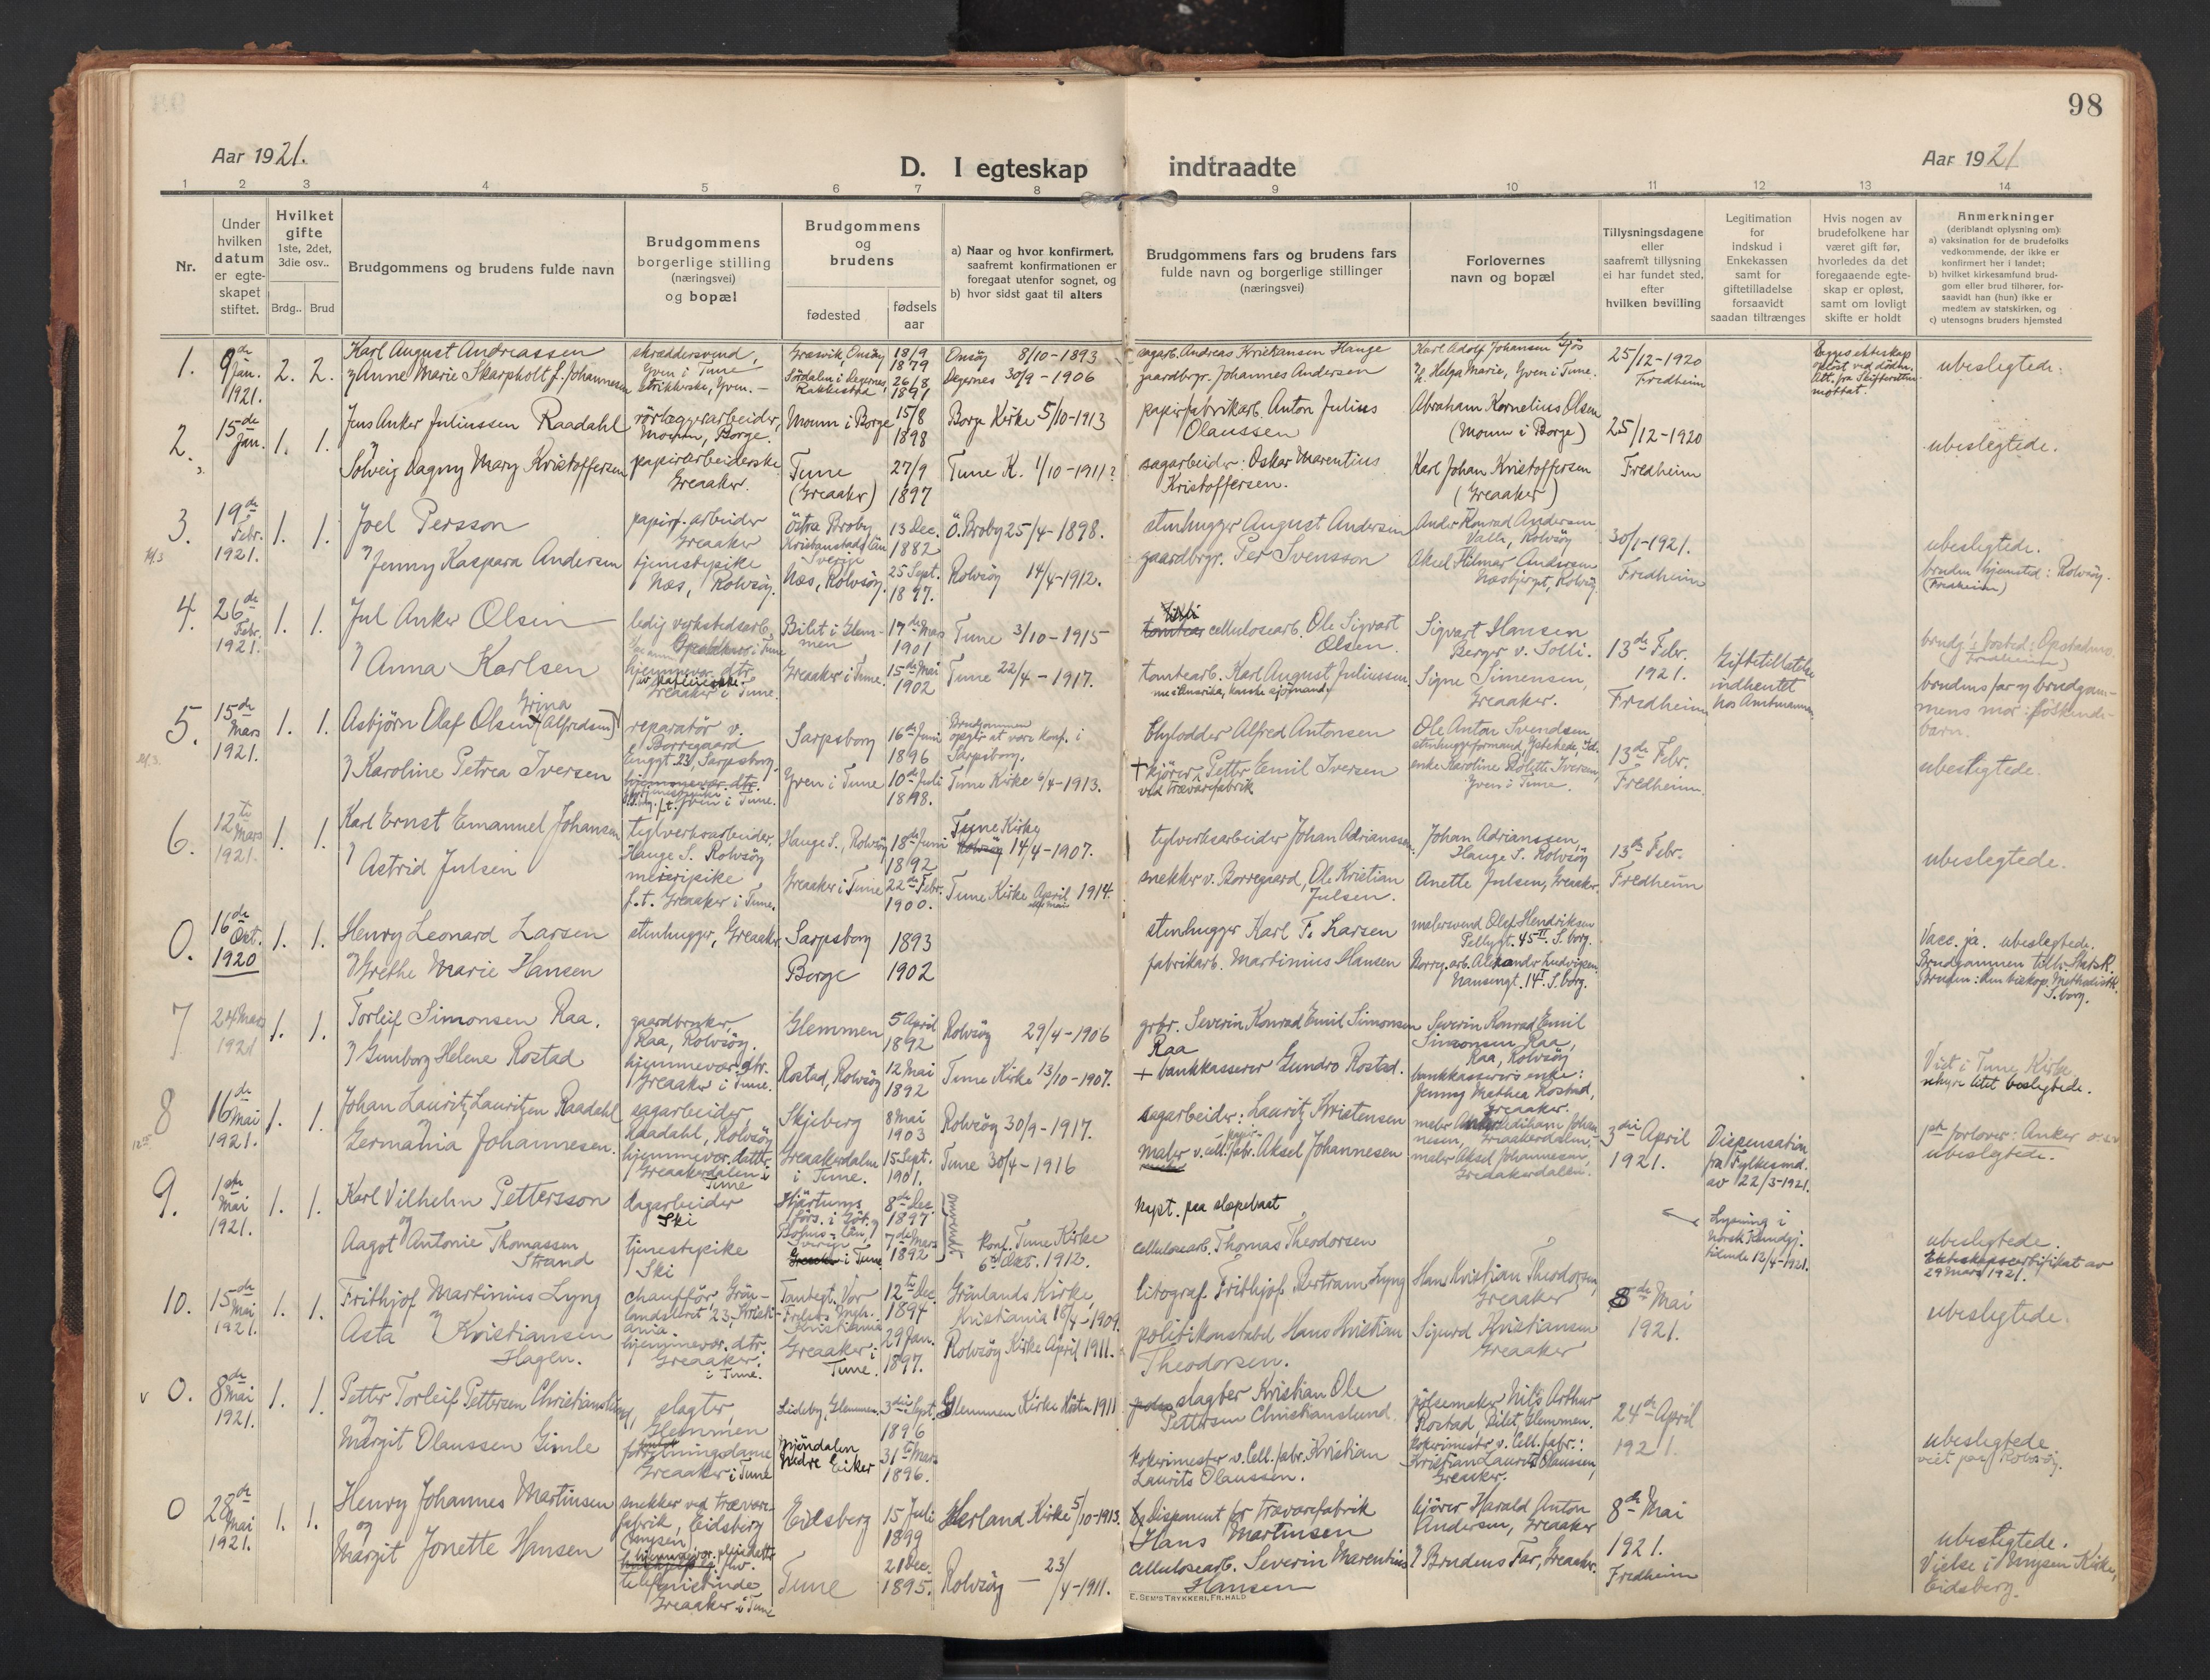 98
Aar 1921.
D. I egteskap indtraadte
Aar 1921
1 2 3 4 5 6 7 8 9 10 11 12 13 14
Nr.
Under hvilken datum er egteskapet stiftet.
Hvilket gifte
1ste, 2det, 3die osv..
Brdg.. Brud
Brudgommens og brudens fulde navn
Brudgommens borgerlige stilling (næringsvei) og bopæl
Brudgommens og brudens
fødested
fødsels aar
a) Naar og hvor konfirmert, saafremt konfirmationen er foregaat utenfor sognet, og
b) hvor sidst gaat til alters
Brudgommens fars og brudens fars fulde navn og borgerlige stillinger (næringsvei)
Forlovernes navn og bopæl
Tillysningsdagene eller saafremt tillysning ei har fundet sted, efter hvilken bevilling
Legitimation for indskud i Enkekassen samt for giftetilladelse forsaavidt saadan tiltrænges
Hvis nogen av brudefolkene har været gift før, hvorledes da det foregaaende egteskap er opløst, samt om lovligt skifte er holdt
Anmerkninger
(deriblandt oplysning om):
a) vaksination for de brudefolks vedkommende, der ikke er konfirmert her i landet;
b) hvilket kirkesamfund brudgom eller brud tilhører, forsaavidt han (hun) ikke er medlem av statskirken, og
c) utensogns bruders hjemsted
1. 9de Jan. 1921. 2. 2.
Karl August Andreassen
Anne Marie Skarpholt f. Johannesen
skræddersvend, Yven i Tune
strikkerske, Yven.
Græsvik, Onsøy 18/9 1879
26/8 1891
Onsøy 8/10-1893
Degernes 30/9-1906
sagarb. Andreas Kristiansen Hauge
gaardbrgr. Johannes Andersen
Karl Adolf Johansen
Helga Marie, Yven i Tune.
25/12-1920
Fredheim
ubeslegtede.
2. 15de Jan. 1. 1.
Jens Anker Juliussen Raadahl
Solveig Dagny Mary Kristoffersen
rørlæggerarbeider, Moum, Borge.
papirarbeiderske Greaaker.
Moum i Borge 15/8 1898
Tune (Greaaker) 27/9 1897
Borge Kirke 5/10-1913
Tune K. 1/10-1911?
papirfabrikarb. Anton Julius Olaussen
sagarbeider: Oskar Marentius Kristoffersen.
Abraham Kornelius Olsen (Moum i Borge)
Karl Johan Kristoffersen (Greaaker)
25/12-1920
Fredheim
ubeslegtede.
3. 19de Febr. 1921. 1. 1.
Joel Persson
Jenny Kaspara Andersen
papirf. arbeider Greaaker
tjenestepike Næs, Rolvsøy.
Östra Broby Kristianstads län Sverige 13 Dec. 1882
Næs, Rolvsøy. 25 Sept. 1897.
Ö. Broby 25/4-1898.
Rolvsøy 14/4-1912.
stenhugger August Andersen
gaardbrgr. Per Svensson
Konrad Andersen Valle, Rolvsøy
Aksel Hilmar Andersen
30/1-1921.
Fredheim
ubeslegtede.
brudens hjemsted: Rolvsøy.
(Fredheim)
4. 26de Febr. 1921. 1. 1.
Jul Anker Olsen
Anna Karlsen
ledig verkstedsarb.
hjemmevær. dtr.
Greaaker i Tune.
Bilet i Glemmen 17de Mars 1901
Greaaker i Tune. 15de Mai 1902
Tune 3/10-1915
Tune 22/4-1917.
cellulosearb. Ole Sigvart Olsen.
tomtearb. Karl August Juliussen,
Sigvart Hansen Berger v. Solli.
Signe Simensen, Greaaker.
13de Febr. 1921.
Fredheim
Giftetilladelse indhentet hos Amtmannen
brudens far og brudgommens mor: søskendebarn.
5. 15de Mars 1921. 1. 1.
Asbjörn Olaf Olsen Grina (Alfredsen)
Karoline Petrea Iversen
reparatör v. Borregaard
Sarpsborg.
Yven i Tune.
Sarpsborg 16de Juni 1896
Yven i Tune 10de Juli 1898.
Brudgommen opgir at være konf. i Sarpsborg.
Tune Kirke 6/4-1913.
Alfred Antonsen
+ kjører Petter Emil Iversen ved trævarefabrik
Ole Anton Svendsen
enke Karoline Iversen, Yven i Tune.
13de Febr.
Fredheim.
ubeslegtede.
6. 12te Mars 1921. 1. 1.
Karl Ernst Emanuel Johansen
Astrid Julsen
teglverksarbeider, Hauge S. Rolvsøy
meieripike f.t. Greaaker i Tune.
Hauge S., Rolvsøy 18de Juni 1892
Greaaker i Tune 22de Febr. 1900.
Tune Kirke 14/4-1907.
Tune Kirke April 1914.
teglverksarbeider Johan Adrianssen
snekker v. Borregaard, Ole Kristian Julsen.
Johan Adrianssen, Hauge S. Rolvsøy
Anette Julsen, Greaaker.
13de Febr.
Fredheim
ubeslegtede.
0. 16de Okt. 1920 1. 1.
Henry Leonard Larsen
Grethe Marie Hansen
stenhugger, Greaaker
Sarpsborg 1893
Borge 1902
stenhugger Karl F. Larsen
fabrikarb. Martinius Hansen
malersvend Olaf Hendriksen 45 II. S.borg.
Borreg. arb. Alexander Ludvigsen Nansengt. 14 I. S.borg.
Vacc. ja. ubeslegtede.
Brudgommen tilh. StatsK.
Bruden: den biskop. Methodistk. S.borg.
7 24 Mars 1921 1. 1.
Torleif Simonsen Raa.
Gunborg Helene Rostad
gaardbruker, Raa, Rolvsøy.
hjemmevær. dtr. Greaaker i Tune.
Glemmen 5 April 1892
Rostad, Rolvsøy 12 Mai 1892
Rolvsøy 29/4-1906
Tune Kirke 13/10-1907.
grbr. Severin Konrad Emil Simonsen Raa
+ bankkasserer Gundro Rostad.
Severin Konrad Emil Simonsen Raa, Raa, Rolvsøy
bankkasserers enke: Jenny Mathea Rostad, Greaaker.
Viet i Tune Kirke,
litet beslegtede.
8 16de Mai 1921. 1. 1.
Johan Lauritz Lauritzen Raadahl
Germania Johannesen.
sagarbeider Raadahl, Rolvsøy
hjemmevær. datter, Greaakerdalen i Tune
Skjeberg 8 Mai 1903
Greaakerdalen i Tune. 15 Sept. 1901.
Rolvsøy 30/9-1917.
Tune 30/4-1916
sagarbeider: Lauritz Kristensen
maler v. cell. papirfabr. Aksel Johannesen
maler Aksel Johannesen, Greaakerdalen.
3die April 1921.
Dispensation fra Fylkesmd. av 22/3-1921.
1ste forlover: Anker
ubeslegtede.
9. 1ste Mai 1921. 1. 1.
Karl Vilhelm Pettersson
og
Aagot Antonie Thomassen Strand
dagarbeider Ski
tjenestepike Ski
Hjärtums förs. i Göt. og Bohus län, Sverige 8de Dec. 1897
i Tune 7de Mars 1892
Konf. Tune Kirke 6te Okt. 1912.
cellulosearb. Thomas Theodorsen
Lysning i Norsk Kundgj. tidende 12/4-1921.
ubeslegtede.
Ekteskapscertifikat av 29 Mars 1921.
10. 15de Mai 1921. 1. 1.
Frithjof Martinius Lyng
Asta Kristiansen Hagen.
chauffør, Grønlandsleret 23, Kristiania.
hjemmevær. dtr. Greaaker i Tune.
Kristiania 12te Dec. 1894
Greaaker i Tune. 29 Jan. 1897.
Grønlands Kirke, Kristiania 18/4-1909.
Rolvsøy Kirke April 1911.
litograf. Frithjof Bertram Lyng
politikonstabel Hans Kristian Theodorsen.
Hans Kristian Theodorsen, Greaaker
Sigurd Kristiansen Greaaker
8de Mai 1921.
ubeslegtede.
0. 8de Mai 1921. 1. 1.
Petter Torleif Pettersen Christianslund,
og
Margit Olaussen Gimle
slagter, Glemmen
forretningsdame Greaaker i Tune
Lideby, Glemmen. 3die Sept. 1896
Mjøndalen Nedre Eiker 31te Mars 1896.
Glemmen Kirke Høsten 1911
slagter Kristian Ole Pettersen Christianslund.
kokerimester v. Cell. fabr. Kristian Laurits Olaussen.
pølsemaker Nils Arthur Rostad, Bilet, Glemmen.
kokerimester v. Cell. fabr.: Kristian Laurits Olaussen, Greaaker.
24de April 1921.
ubeslegtede
viet paa Rolvsøy.
0 28de Mai 1921. 1. 1.
Henry Johannes Martinsen
og
Margit Jonette Hansen
snekker ved trævarefabrik, Eidsberg (Mysen)
telefonistinde Greaaker i Tune
Eidsberg 15 Juli 1899
Tune 21 Dec. 1895.
Herland Kirke 5/10-1913.
Rolvsøy 23/4-1911.
Disponent for trævarefabrik Hans Martinsen
cellulosearb. Severin Marentius Hansen
kjører Harald Anton Andersen, Greaaker
Brudens Far, Greaaker.
8de Mai 1921.
Fredheim
ubeslegtede.
Vielse i Mysen Kirke, Eidsberg.
E. SEM'S TRYKKERI, FR.HALD